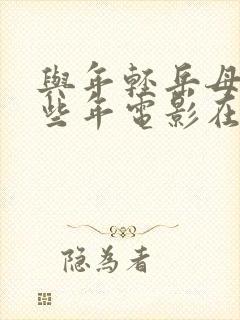 與年輕岳母
些年電影在
隐為者